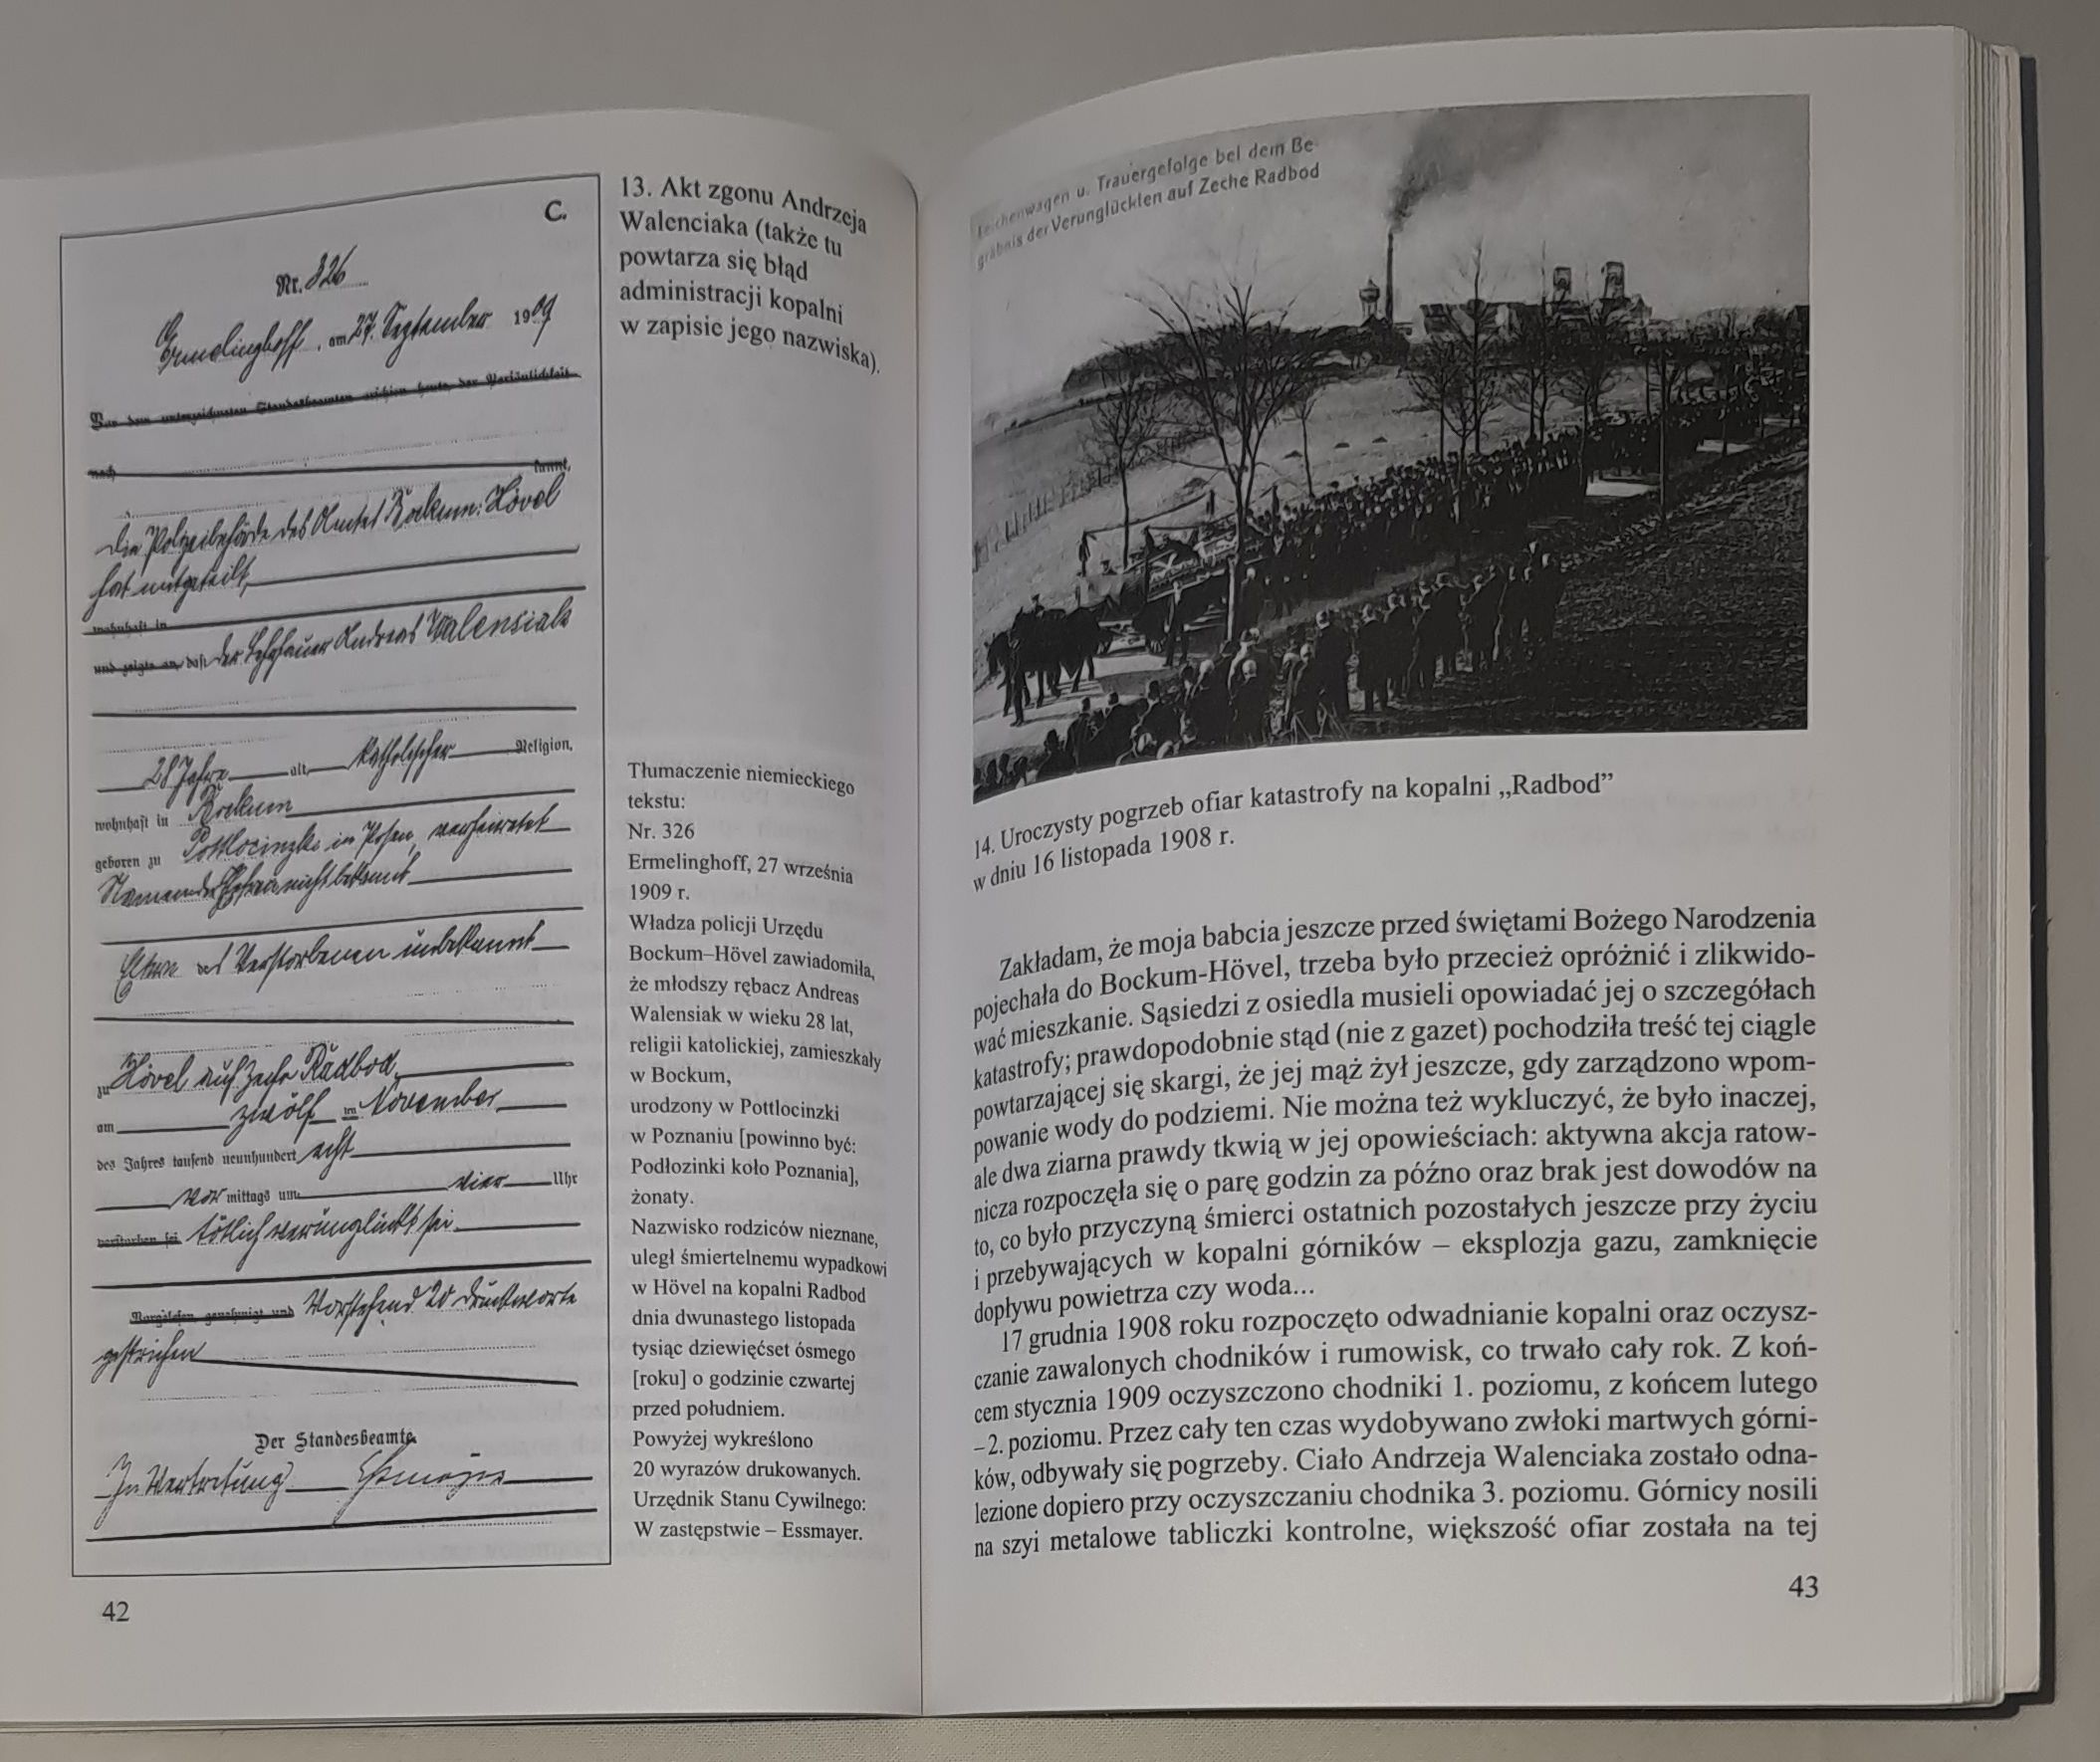 C.
Nr. 326
Ermelinghoff, am 27. September 1909
Vor dem unterzeichneten Standesbeamten erschien heute, der Persönlichkeit
nach
kannt,
Die Polizeibehörde des Amtes Bockum-Hövel
hat mitgeteilt,
wohnhaft in
und zeigte an, daß der Lehrhauer Andreas Walensiak
28 Jahre alt, katholischer Religion,
wohnhaft in Bockum
geboren zu Pottlocinzki in Posen, verheiratet
Namen der Ehefrau nicht bekannt
Eltern des Verstorbenen unbekannt
zu Hövel auf Zeche Radbod,
am zwölf ten November
des Jahres tausend neunhundert acht
vor mittags um vier Uhr
verstorben sei tötlich verunglückt sei.
Vorgelesen, genehmigt und Vorstehend 20 Druckworte
gestrichen
Der Standesbeamte
In Vertretung
13. Akt zgonu Andrzeja
Walenciaka (także tu
powtarza się błąd
administracji kopalni
w zapisie jego nazwiska).
Tłumaczenie niemieckiego
tekstu:
Nr. 326
Ermelinghoff, 27 września
1909 r.
Władza policji Urzędu
Bockum–Hövel zawiadomiła,
że młodszy rębacz Andreas
Walensiak w wieku 28 lat,
religii katolickiej, zamieszkały
w Bockum,
urodzony w Pottlocinzki
w Poznaniu [powinno być:
Podłozinki koło Poznania],
żonaty.
Nazwisko rodziców nieznane,
uległ śmiertelnemu wypadkowi
w Hövel na kopalni Radbod
dnia dwunastego listopada
tysiąc dziewięćset ósmego
[roku] o godzinie czwartej
przed południem.
Powyżej wykreślono
20 wyrazów drukowanych.
Urzędnik Stanu Cywilnego:
W zastępstwie – Essmayer.
42
Leichenwagen u. Trauergefolge bei dem Be-
gräbnis der Verunglückten auf Zeche Radbod
14. Uroczysty pogrzeb ofiar katastrofy na kopalni „Radbod”
w dniu 16 listopada 1908 r.
Zakładam, że moja babcia jeszcze przed świętami Bożego Narodzenia
pojechała do Bockum-Hövel, trzeba było przecież opróżnić i zlikwido-
wać mieszkanie. Sąsiedzi z osiedla musieli opowiadać jej o szczegółach
katastrofy; prawdopodobnie stąd (nie z gazet) pochodziła treść tej ciągle
powtarzającej się skargi, że jej mąż żył jeszcze, gdy zarządzono wpom-
powanie wody do podziemi. Nie można też wykluczyć, że było inaczej,
ale dwa ziarna prawdy tkwią w jej opowieściach: aktywna akcja ratow-
nicza rozpoczęła się o parę godzin za późno oraz brak jest dowodów na
to, co było przyczyną śmierci ostatnich pozostałych jeszcze przy życiu
i przebywających w kopalni górników – eksplozja gazu, zamknięcie
dopływu powietrza czy woda...
17 grudnia 1908 roku rozpoczęto odwadnianie kopalni oraz oczysz-
czanie zawalonych chodników i rumowisk, co trwało cały rok. Z koń-
cem stycznia 1909 oczyszczono chodniki 1. poziomu, z końcem lutego
–2. poziomu. Przez cały ten czas wydobywano zwłoki martwych górni-
ków, odbywały się pogrzeby. Ciało Andrzeja Walenciaka zostało odna-
lezione dopiero przy oczyszczaniu chodnika 3. poziomu. Górnicy nosili
na szyi metalowe tabliczki kontrolne, większość ofiar została na tej
43